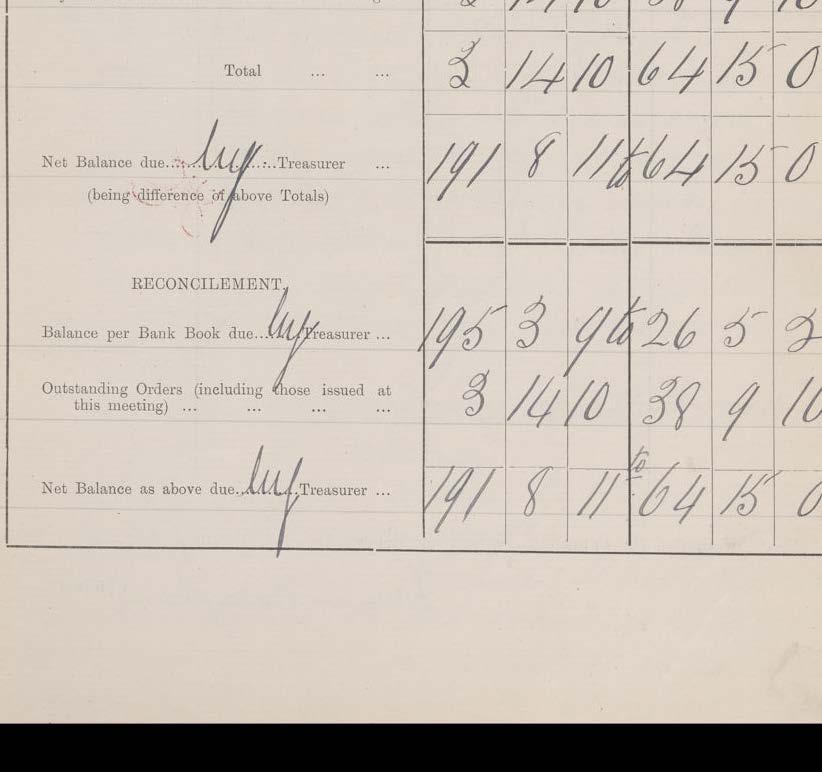 Total ... ... 3 14 10 64 15 0
Net Balance due....by....Treasurer ... 191 8 11 to 64 15 0
(being difference of above Totals)
RECONCILEMENT.
Balance per Bank Book due....by..Treasurer ... 195 3 9 to 26 5 2
Outstanding Orders (including those issued at
this meeting) ... ... ... ... 3 14 10 38 9 10
Net Balance as above due..by..Treasurer ... 191 8 11 to 64 15 0